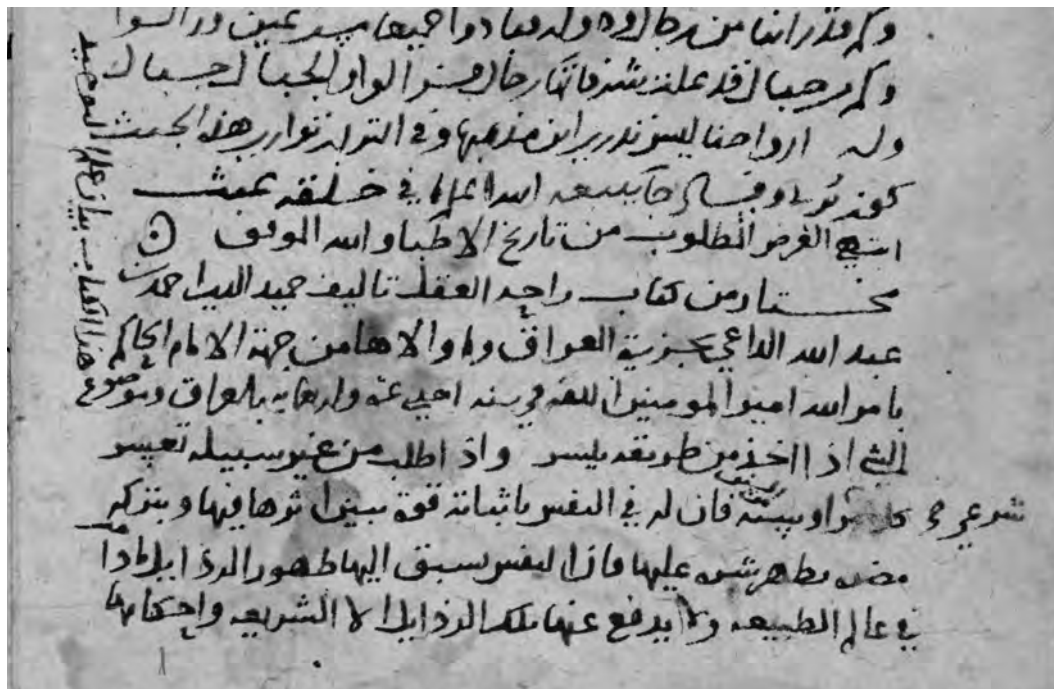 وكم قد راينا من رجال ودولة فبادوا جميعا مسرعين وزالوا
وكم من جبال قد علت شرفاتها رجال فزالوا والجبال جبال
وله ارواحنا ليس ندري اين مذهبها وفي التراب توارى هذه الجثث
كون يرى وفساد جا يتبعه الله اعلم ما في خلقه عبث
انتهى الغرض المطلوب من تاريخ الاطبا والله الموفق
مختار من كتاب راحه العقل تاليف حميد الدين احمد بن
عبد الله الداعي بجزيرة العراق وما والاها من جهة الامام الحاكم
بامر الله امير المومنين الفه في سنه احدى عشرة واربعمايه بالعراق
الشي اذا اخذ من طريقه يتيسر واذا طلب من غير سبيله تعسر
شرعي فان له في النفس باثباته قوة يبين اثرها فيها وبتركه
عليها فان النفس يسبق اليها ظهور الرذايل
في عالم الطبيعه ولا يدفع عنها تلك الرذايل الا الشريعه واحكامها
هذا الكتاب بيان علم التوحيد